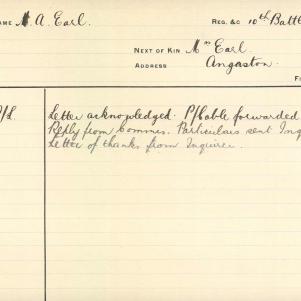 NAME A. Earl. REG. &C 10th Batt
NEXT OF KIN Mrs Earl
ADDRESS Angaston.
Letter acknowledged. P/Cable forwarded
Reply from Commrs. Particulars sent Inq
Letter of thanks from Inquirer